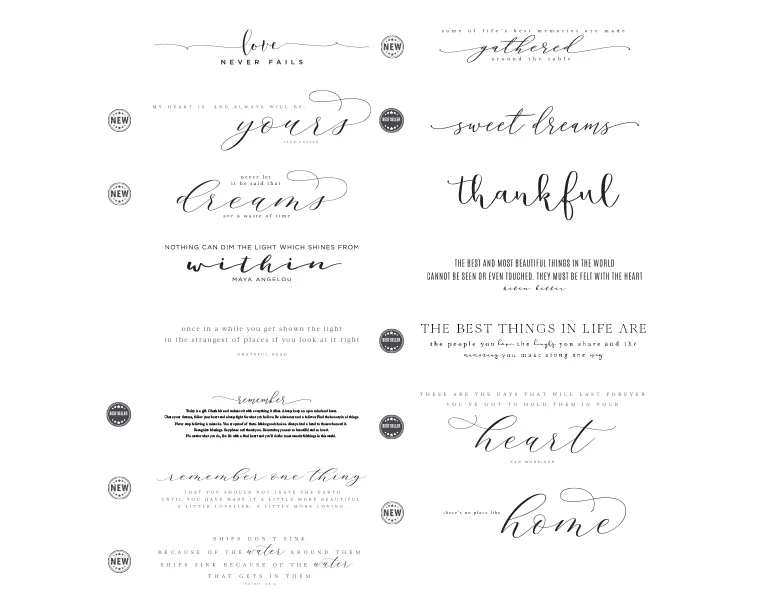 love
NEVER FAILS
NEW
MY HEART IS, AND ALWAYS WILL BE,
yours
JANE AUSTEN
NEW
never let
it be said that
dreams
are a waste of time
NOTHING CAN DIM THE LIGHT WHICH SHINES FROM
within
MAYA ANGELOU
once in a while you get shown the light
in the strangest of places if you look at it right
GRATEFUL DEAD
BEST SELLER
remember
Today is a gift.
NEW
remember one thing
THAT YOU SHOULD NOT LEAVE THE EARTH
UNTIL YOU HAVE MADE IT A LITTLE MORE BEAUTIFUL
A LITTLE LOVELIER. A LITTLE MORE LOVING.
NEW
SHIPS DON'T SINK
BECAUSE OF THE water AROUND THEM
SHIPS SINK BECAUSE OF THE water
THAT GETS IN THEM
NEW
some of life's best memories are made
gathered
around the table
BEST SELLER
sweet dreams
thankful
THE BEST AND MOST BEAUTIFUL THINGS IN THE WORLD
CANNOT BE SEEN OR EVEN TOUCHED. THEY MUST BE FELT WITH THE HEART
helen keller
BEST SELLER
THE BEST THINGS IN LIFE ARE
the people you love the laughs you share and the
memories you make along the way
BEST SELLER
THESE ARE THE DAYS THAT WILL LAST FOREVER
YOU'VE GOT TO HOLD THEM IN YOUR
heart
VAN MORRISON
NEW
there's no place like
home